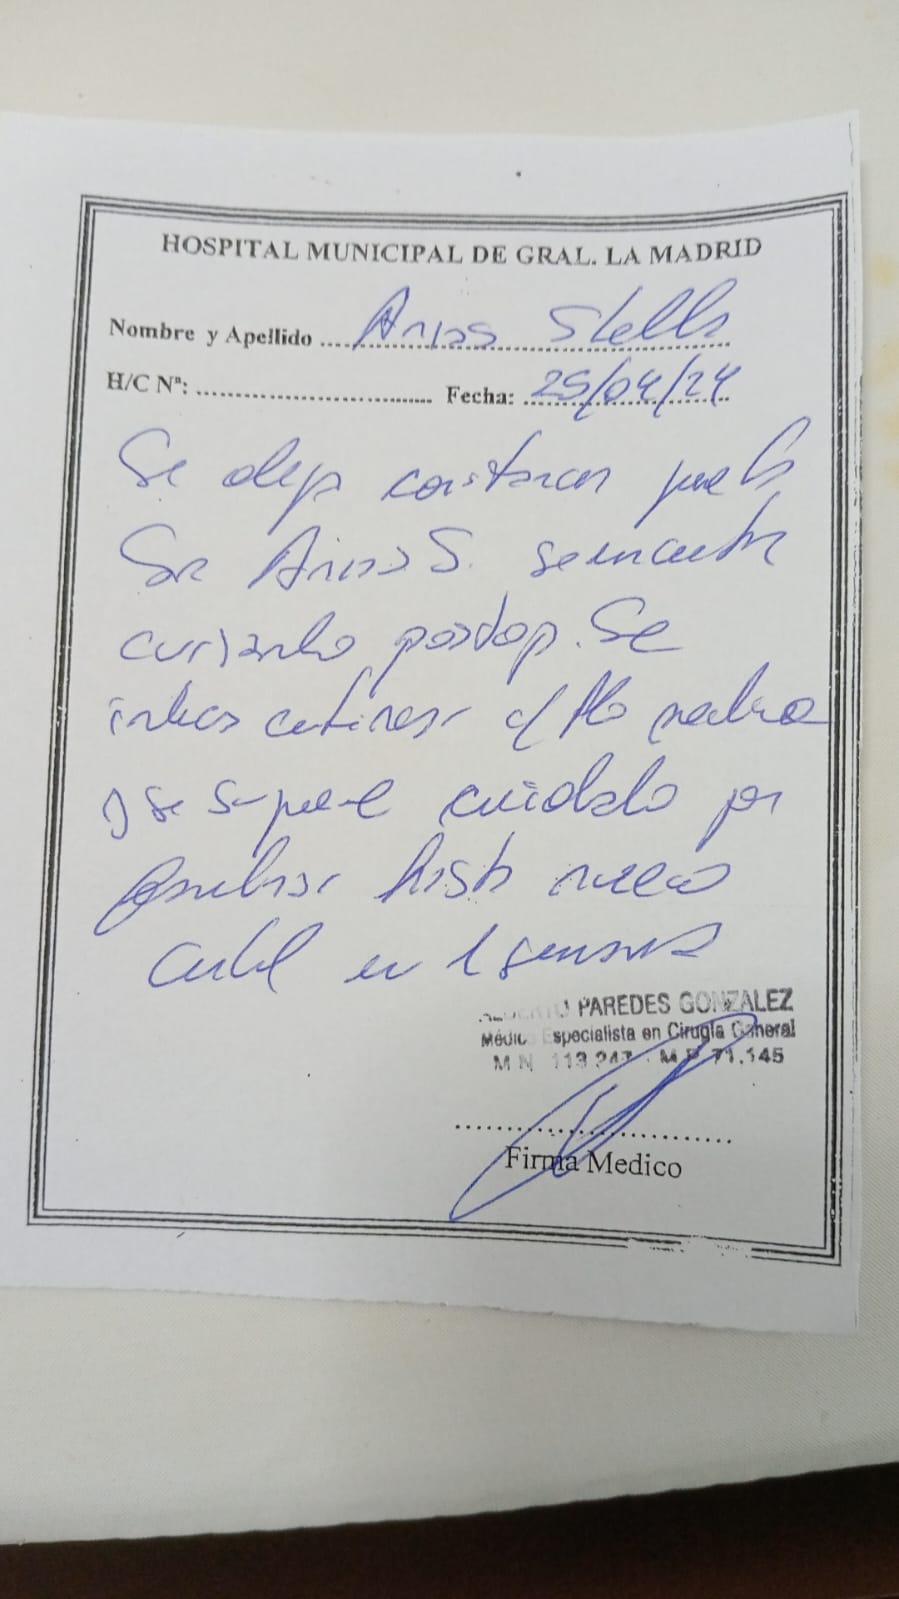 HOSPITAL MUNICIPAL DE GRAL. LA MADRID
Nombre y Apellido Arias Stella
H/C Nº: Fecha: 25/04/24
Se deja constancia que la
Sra Arias S. se encuentra
cursando postop. Se
indica continuar c/
y se sugiere cuidado por
familiar hasta nuevo
control en 1 semana
PAREDES GONZALEZ
Médico Especialista en Cirugía General
M N 113.247 M P 71.145
Firma Medico